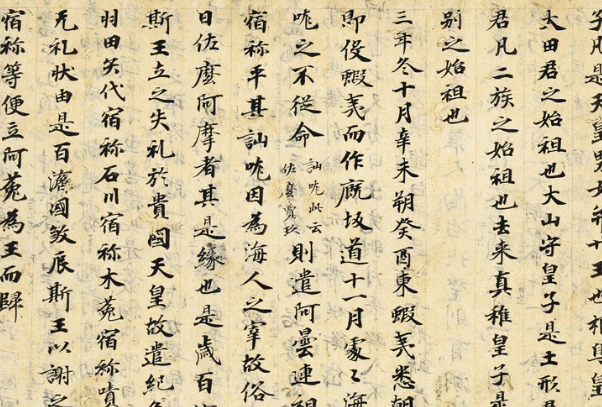 子凡是天皇男女并廿王也根鳥皇
大田君之始祖也大山守皇子是土形君
君凡二族之始祖也去来真稚皇子是
別之始祖也
三年冬十月辛未朔癸酉東蝦夷悉朝
即役蝦夷而作厩坂道十一月處〻海
咙之不従命訕咙此云佐麼賣玖則遣阿曇連祖
宿祢平其訕咙因為海人之宰故俗
日佐麼阿摩者其是縁也是歳百
斯王立之失礼於貴國天皇故遣紀
羽田矢代宿祢石川宿祢木菟宿祢嘖
无礼状由是百濟國敘辰斯王以謝之
宿祢等便立阿菀為王而歸